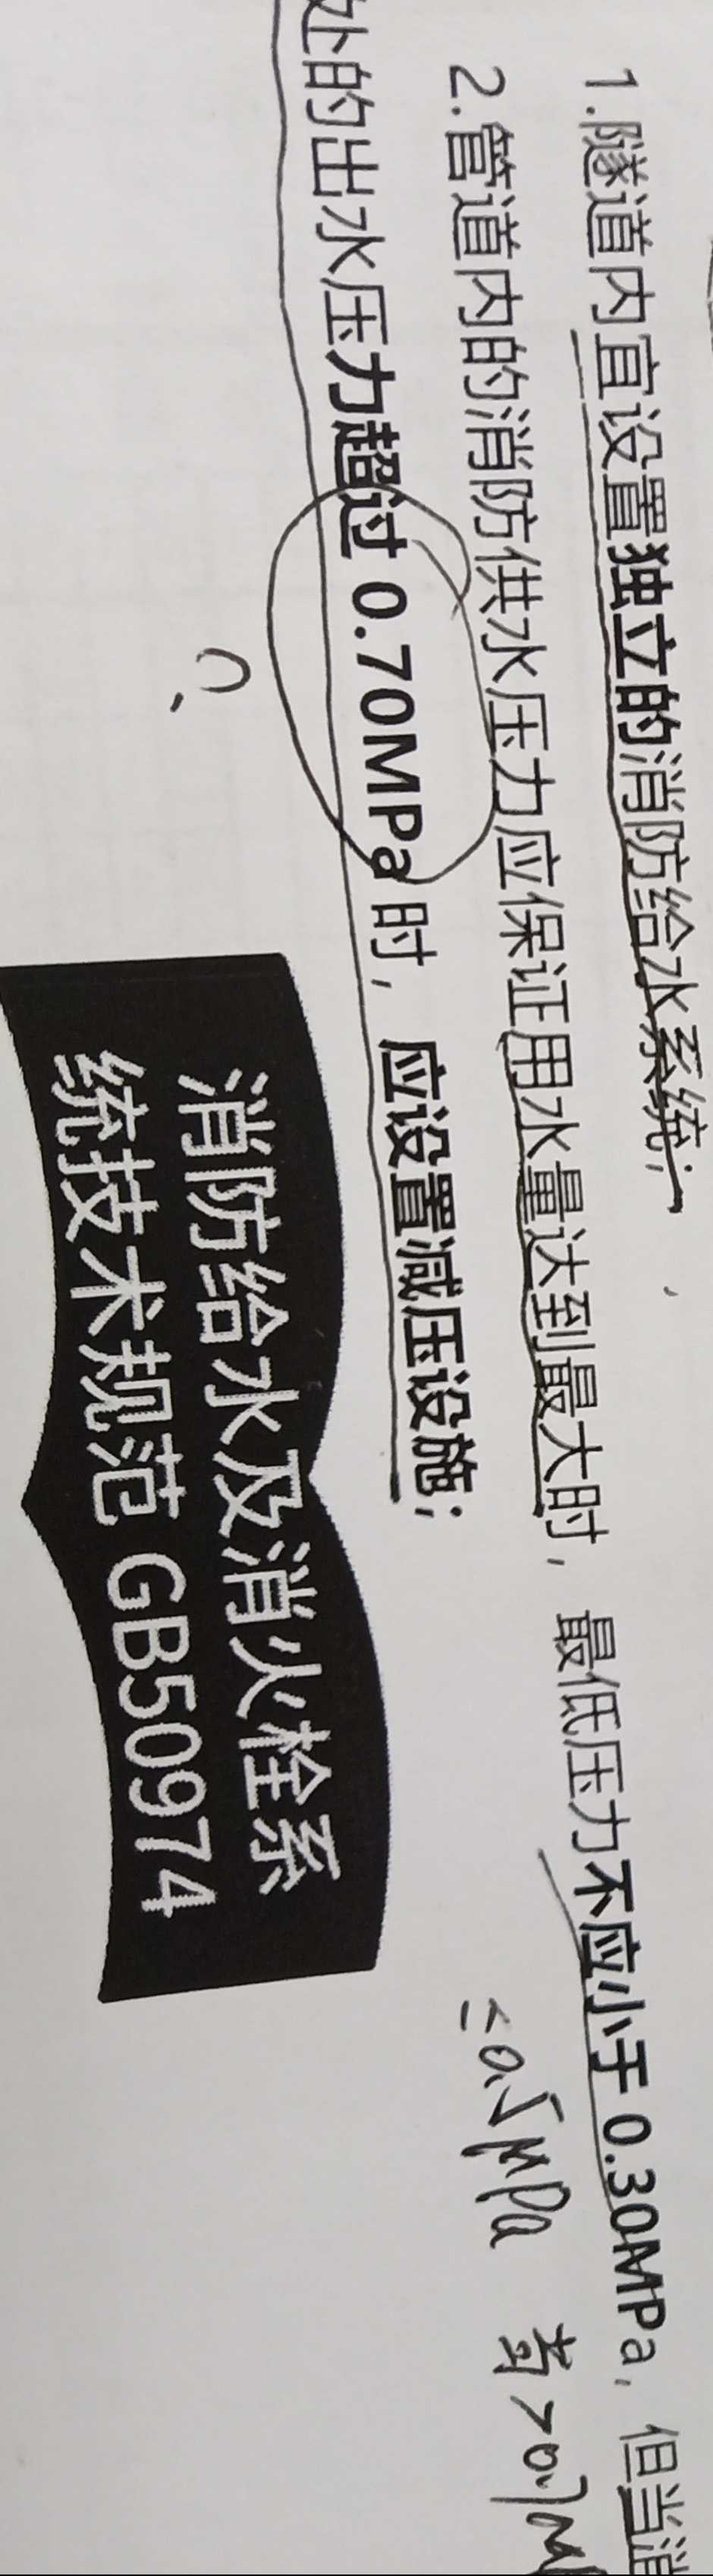 1.隧道内宜设置独立的消防给水系统；
2.管道内的消防供水压力应保证用水量达到最大时，最低压力不应小于 0.30MPa，但当消
处的出水压力超过 0.70MPa 时，应设置减压设施；
≤0.5MPa 当>0.7M
消防给水及消火栓系
统技术规范 GB50974